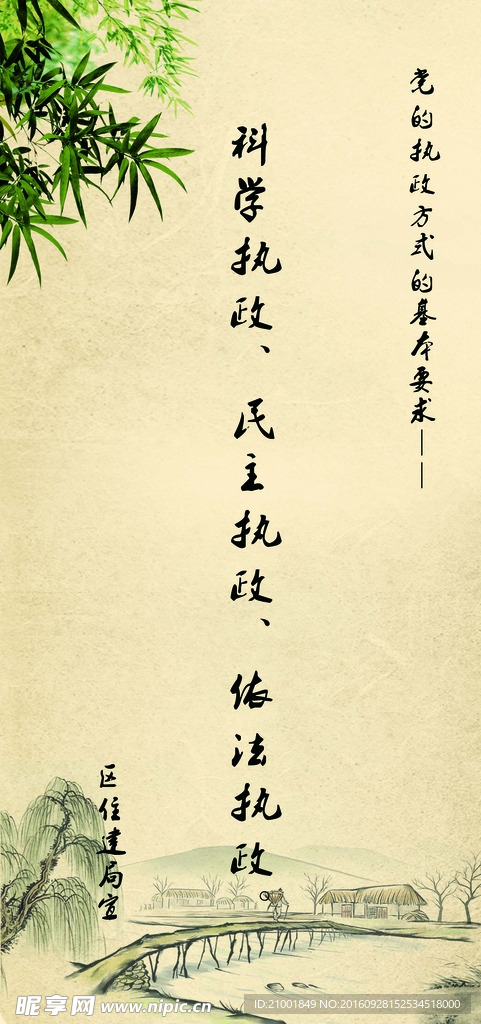 党的执政方式的基本要求——
科学执政、民主执政、依法执政
区住建局宣
昵享网 www.nipic.cn
ID:21001849 NO:20160928152534518000